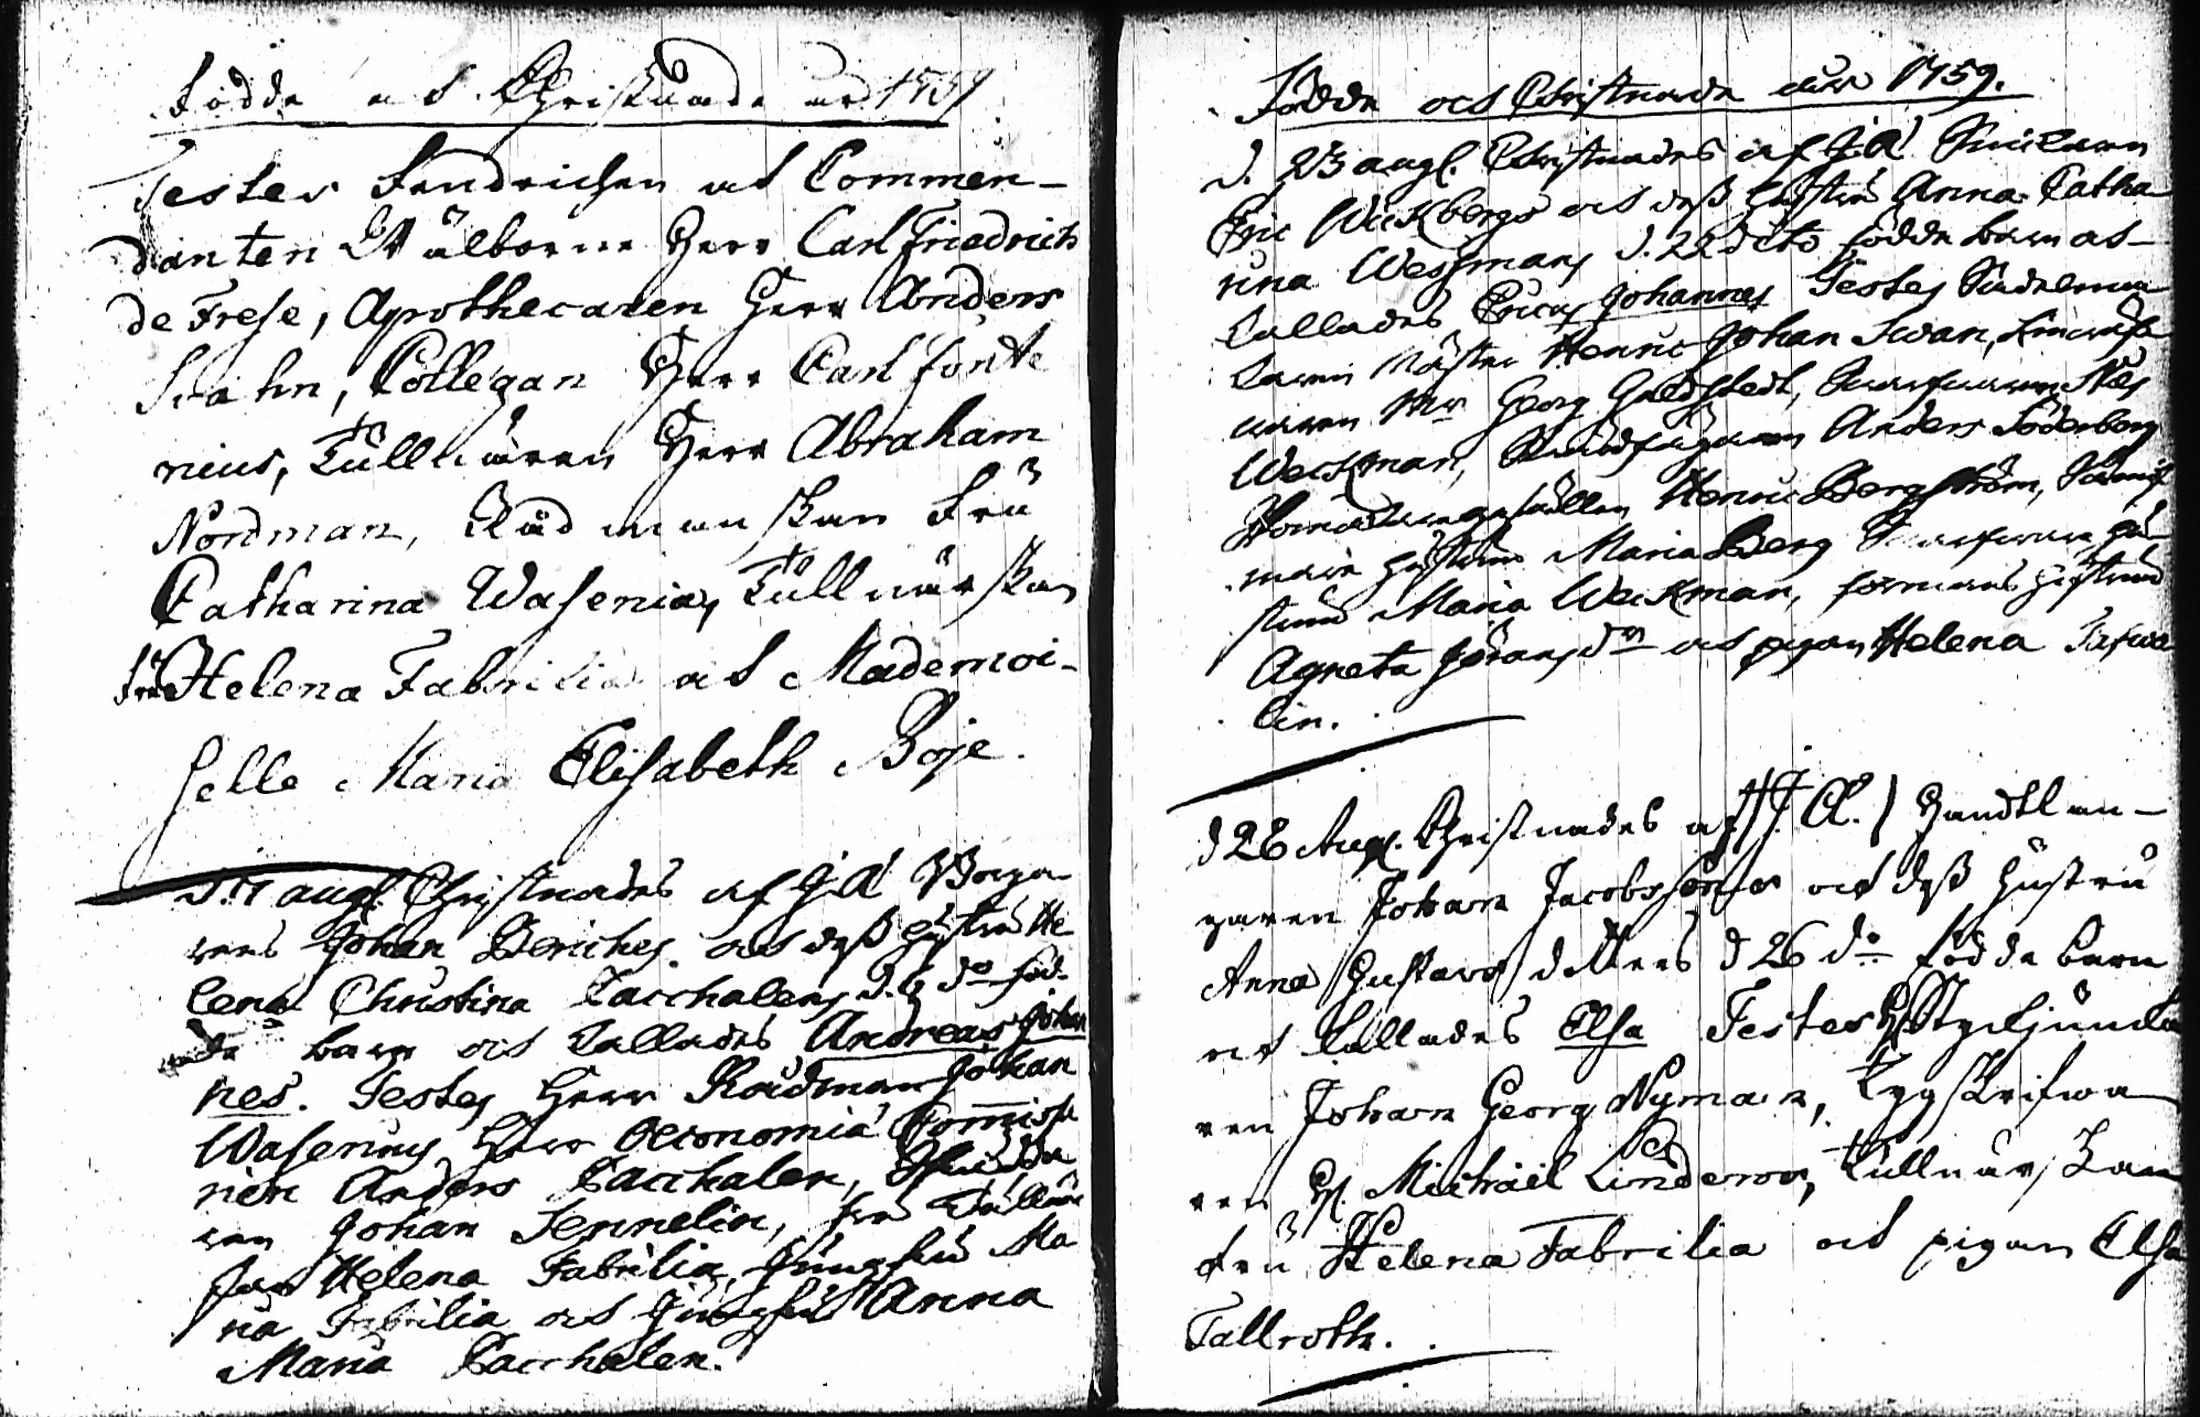 Födde och Christnade år 1759
Testes Fendrichen och Commen-
danten Wälborne Herr Carl Friedrich
de Frese, Apothecaren Herr Anders
Svahn, Collegan Herr Carl Fonte
nius, Tullnären Herr Abraham
Nordman, Rådmanskan Fru
Catharina Wasenia, Tullnärskan
Fru Helena Fabrilia och Mademoi-
selle Maria Elisabeth Boje.
d. 7 aug. Christnades af J.A. Borga
rens Johan Beriches och dess hustru He
lena Christina Zacchalens d. 6 do föd-
da barn och kallades Andreas Johan
nes. Testes Herr Rådman Johan
Wasenius Herr Oeconomiæ Commissa
rien Anders Zacchalen,
ren Johan Sennelin, Fru Tullnär
skan Helena Fabrilia, Jungfru Ma
ria Fabrilia och Jungfru Anna
Maria Zacchalen.
Födde och Christnade åhr 1759.
d. 23 aug. Christnades af J.A.
Eric Wickbergs och dess hustru Anna Catha
rina Wessmans d. 22 dito födde barn och
kallades Ericus Johannes Testes
Mäster Henric Johan Swan,
Mr Georg Guldstedt, Nils
Weckman, Anders Söderberg
Henric Bergström,
hustrun Maria Berg hu
strun Maria Weckman, hustrun
Agneta Göransdr och pigan Helena
lin.
d 28 Aug. Christnades af /J.A./ Handtlan-
garen Johan Jacobssons och dess hustru
Anna Gustavs dotters d 26 do födda barn
och kallades Elsa Testes H Styckjunka
ren Johan Georg Nyman, Tygskrifwa
ren H. Michaël Linderoos, Tullnärskan
Fru Helena Fabrilia och pigan Elsa
Tallroth.